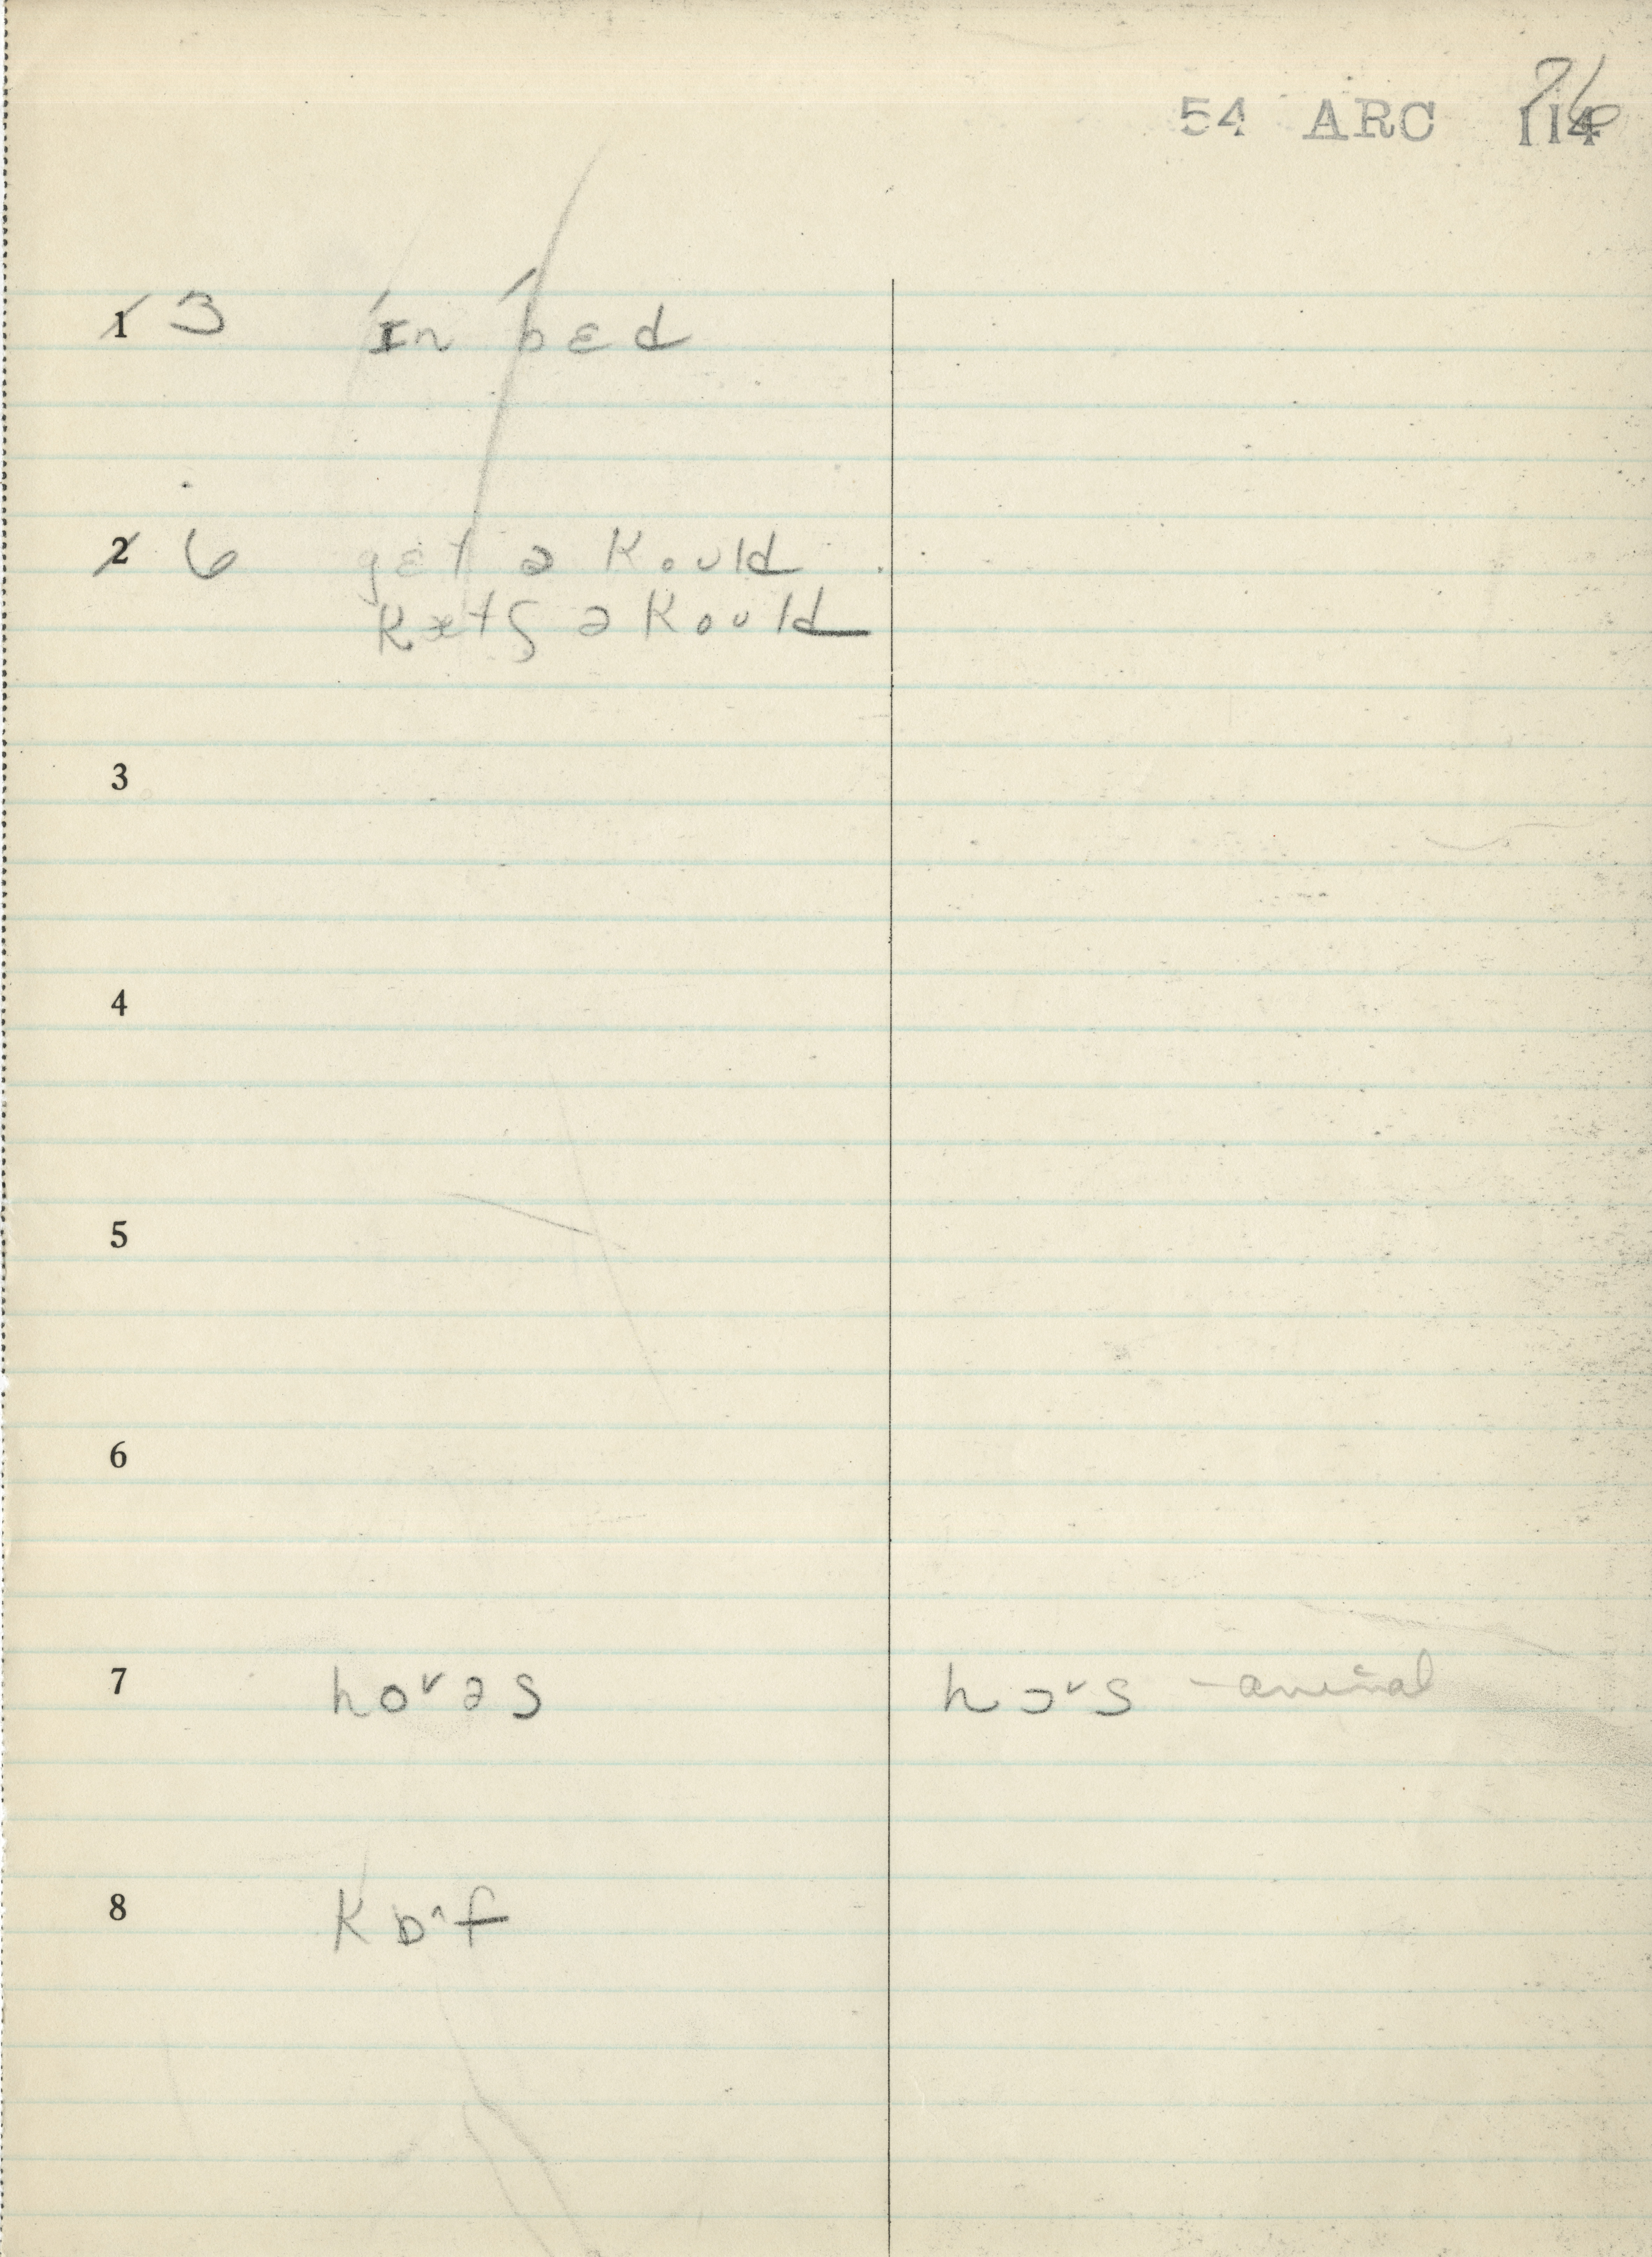 76
54 ARC 114
1 3 ˈɪn ˈbɛd
2 6 gɛt ə koʊld
kætʃ ə koʊld
3
4
5
6
7 hoʳəs hɔʳs - animal
8 kɒˑf